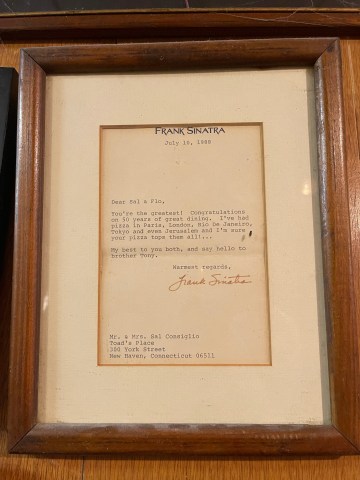 FRANK SINATRA
July 18, 1988
Dear Sal & Flo,
You're the greatest! Congratulations
on 50 years of great dining. I've had
pizza in Paris, London, Rio De Janeiro,
Tokyo and even Jerusalem and I'm sure
your pizza tops them all!...
My best to you both, and say hello to
brother Tony.
Warmest regards,
Frank Sinatra
Mr. & Mrs. Sal Consiglio
Toad's Place
300 York Street
New Haven, Connecticut 06511